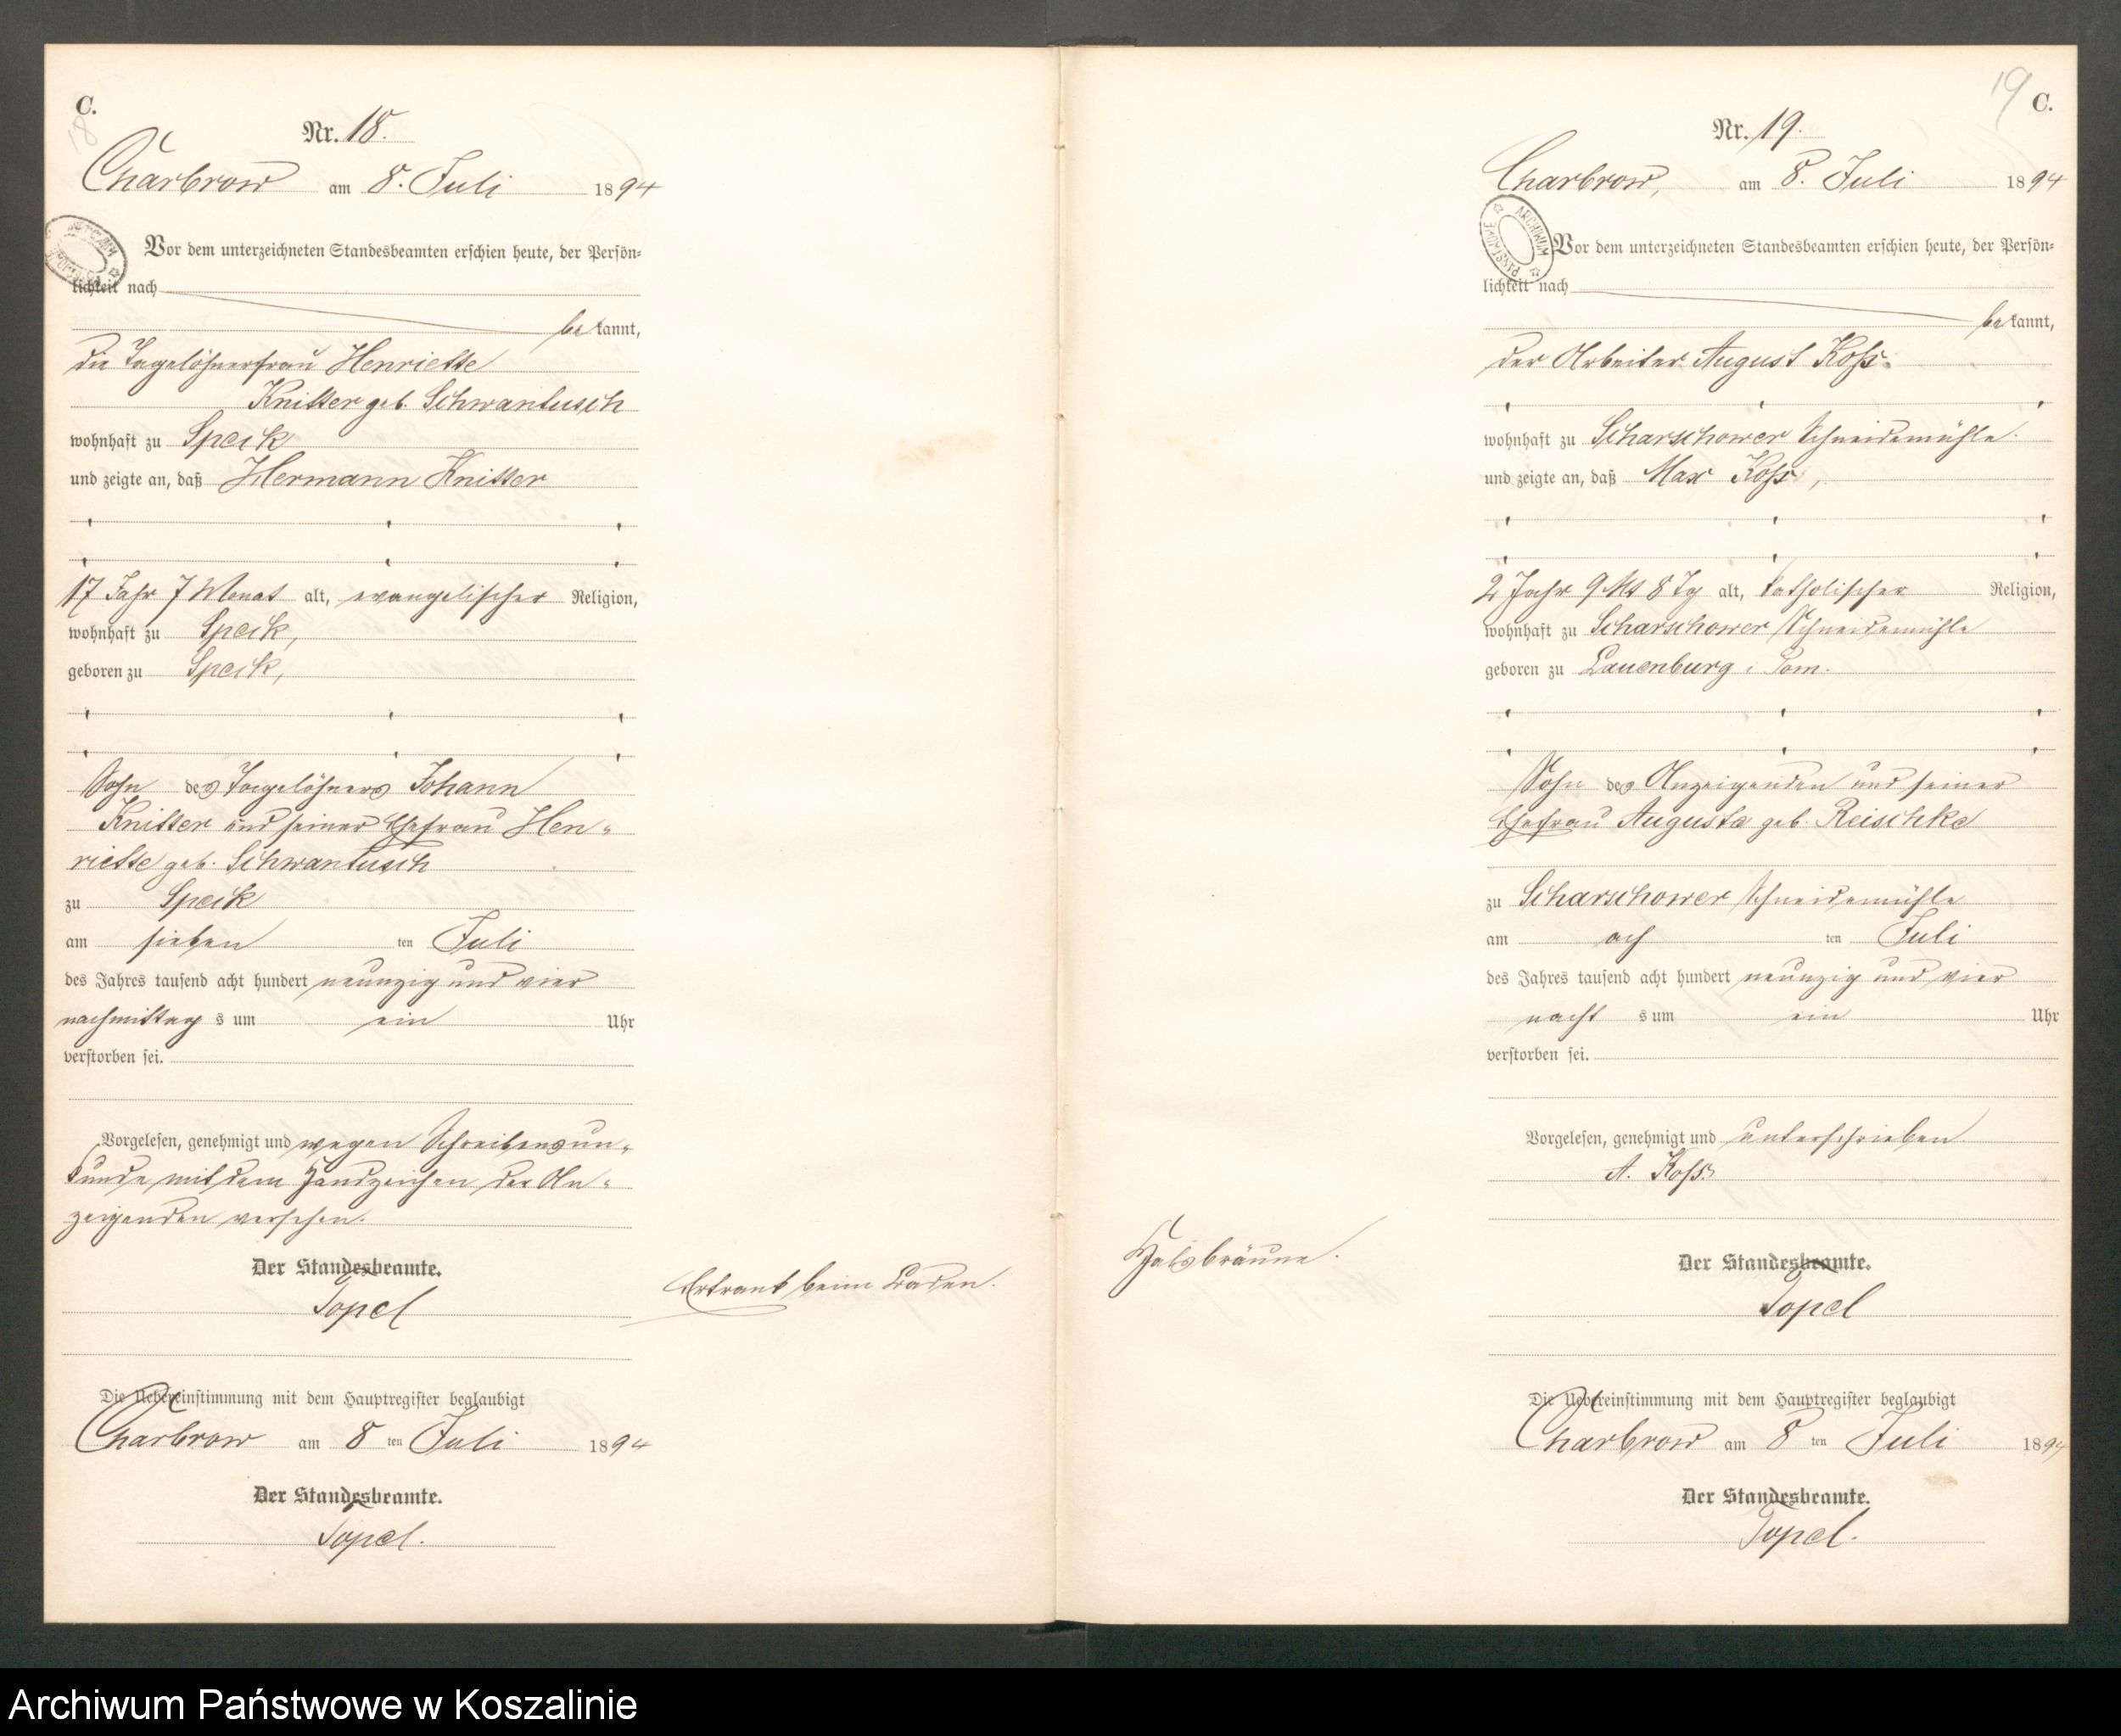 C.
18
Nr. 18.
Charbrow am 8. Juli 1894
Vor dem unterzeichneten Standesbeamten erschien heute, der Persön-
lichkeit nach
bekannt,
die Tagelöhnerfrau Henriette
Knitter geb. Schwantusch
wohnhaft zu Speck
und zeigte an, daß Hermann Knitter
17 Jahr 7 Monat alt, evangelischer Religion,
wohnhaft zu Speck,
geboren zu Speck,
Sohn des Tagelöhners Johann
Knitter und seiner Ehefrau Hen-
riette geb. Schwantusch
zu Speck
am sieben ten Juli
des Jahres tausend acht hundert neunzig und vier
nachmittag s um ein Uhr
verstorben sei.
Vorgelesen, genehmigt und wegen Schreibensun-
kunde mit dem Handzeichen der An-
zeigenden versehen.
Der Standesbeamte.
Topel
Ertrank beim Baden.
Die Uebereinstimmung mit dem Hauptregister beglaubigt
Charbrow am 8 ten Juli 1894
Der Standesbeamte.
Topel.
19
C.
Nr. 19.
Charbrow, am 8. Juli 1894
ARCHIWUM PAŃSTWOWE
Vor dem unterzeichneten Standesbeamten erschien heute, der Persön-
lichkeit nach
bekannt,
der Arbeiter August Koß
wohnhaft zu Scharschower Schneidemühle.
und zeigte an, daß Max Koß,
2 Jahr 9 Mt 8 Tg alt, katholischer Religion,
wohnhaft zu Scharschower Schneidemühle
geboren zu Lauenburg i Pom.
Sohn des Anzeigenden und seiner
Ehefrau Augusta geb. Reischke
zu Scharschower Schneidemühle
am ach ten Juli
des Jahres tausend acht hundert neunzig und vier
nacht s um ein Uhr
verstorben sei.
Vorgelesen, genehmigt und unterschrieben
A. Koß.
Halsbräune.
Der Standesbeamte.
Topel
Die Uebereinstimmung mit dem Hauptregister beglaubigt
Charbrow am 8 ten Juli 1894
Der Standesbeamte.
Topel.
Archiwum Państwowe w Koszalinie